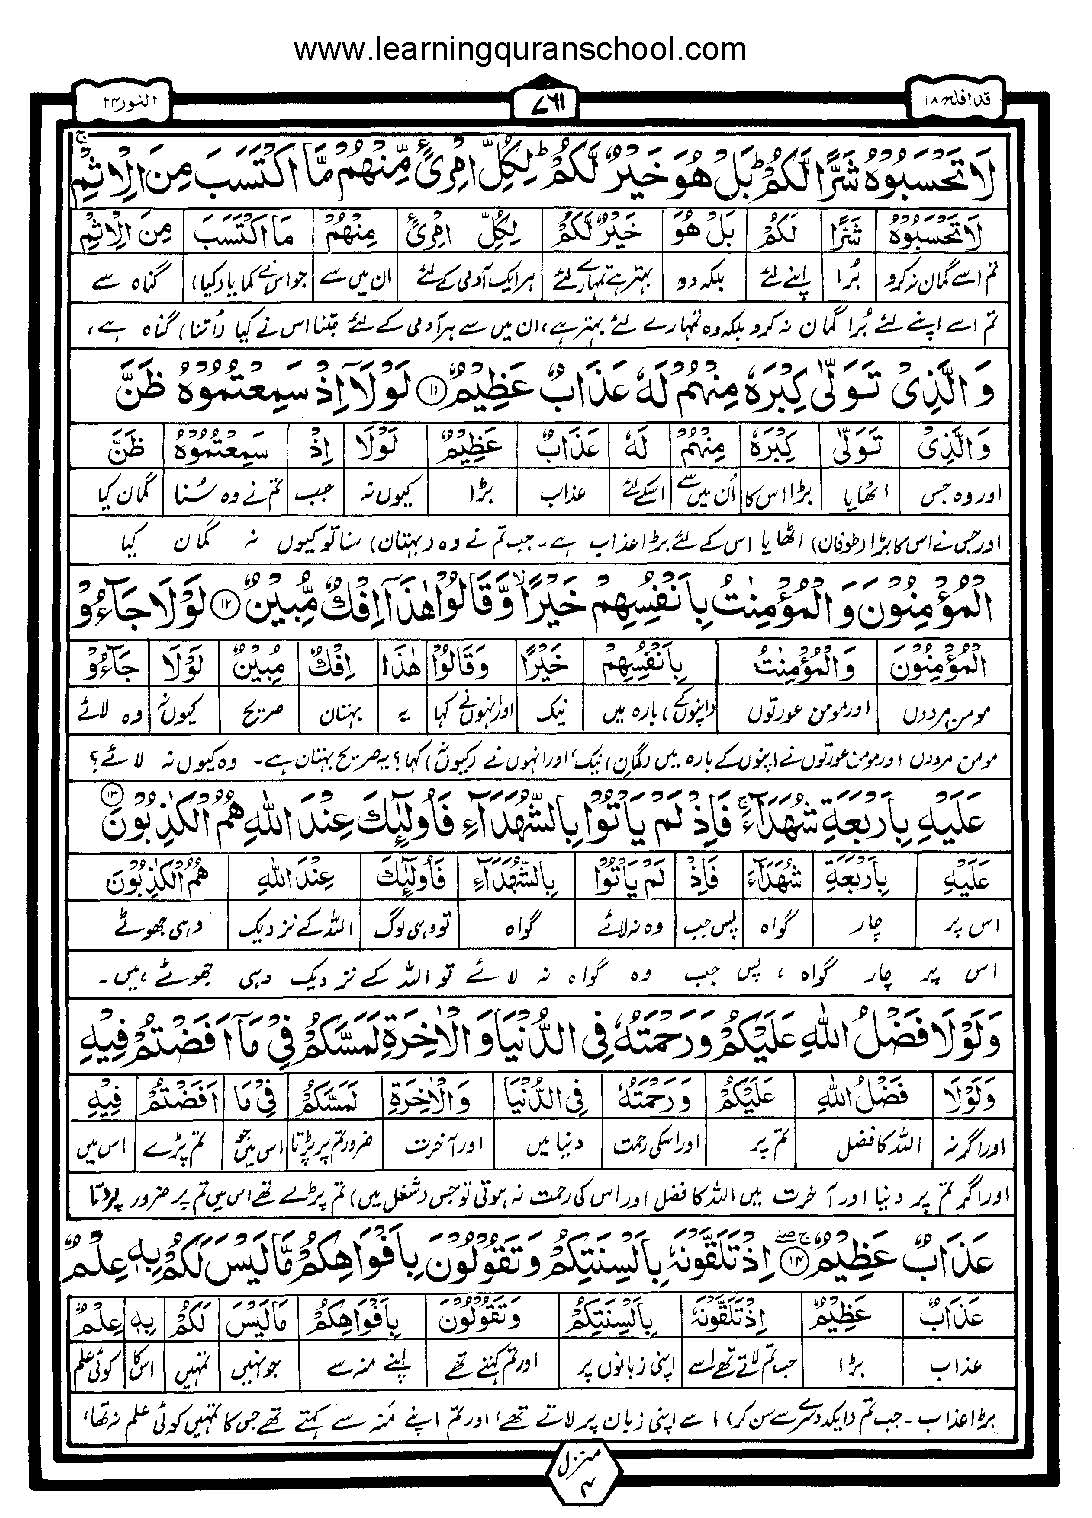 www.learningquranschool.com
قد افلح ١٨
٧٦١
النور ٢٤
لَا تَحْسَبُوْهُ شَرًّا لَّكُمْ ؕ بَلْ هُوَ خَيْرٌ لَّكُمْ ؕ لِكُلِّ امْرِئٍ مِّنْهُمْ مَّا اكْتَسَبَ مِنَ الْاِثْمِ ۚ
لَا تَحْسَبُوْهُ شَرًّا لَكُمْ بَلْ هُوَ خَيْرٌ لَكُمْ لِكُلِّ امْرِئٍ مِنْهُمْ مَا اكْتَسَبَ مِنَ الْاِثْمِ
تم اسے گمان نہ کرو بُرا اپنے لئے بلکہ وہ بہتر ہے تمہارے لئے ہر ایک آدمی کے لئے ان میں سے جو اس نے کمایا (کیا) گناہ سے
تم اسے اپنے لئے بُرا گمان نہ کرو بلکہ وہ تمہارے لئے بہتر ہے، ان میں سے ہر آدمی کے لئے جتنا اس نے کیا (اتنا) گناہ ہے،
وَالَّذِىْ تَوَلّٰى كِبْرَهٗ مِنْهُمْ لَهٗ عَذَابٌ عَظِيْمٌ ۝١١ لَوْلَاۤ اِذْ سَمِعْتُمُوْهُ ظَنَّ
وَالَّذِىْ تَوَلّٰى كِبْرَهٗ مِنْهُمْ لَهٗ عَذَابٌ عَظِيْمٌ لَوْلَا اِذْ سَمِعْتُمُوْهُ ظَنَّ
اور وہ جس اٹھایا بڑا اس کا اُن میں سے اسکے لئے عذاب بڑا کیوں نہ جب تم نے وہ سُنا گمان کیا
اور جس نے اس کا بڑا (طوفان) اٹھایا اس کے لئے بڑا عذاب ہے۔ جب تم نے وہ (بہتان) سنا تو کیوں نہ گمان کیا
الْمُؤْمِنُوْنَ وَالْمُؤْمِنٰتُ بِاَنْفُسِهِمْ خَيْرًا ۙ وَّقَالُوْا هٰذَاۤ اِفْكٌ مُّبِيْنٌ ۝١٢ لَوْلَا جَآءُوْ
الْمُؤْمِنُوْنَ وَالْمُؤْمِنٰتُ بِاَنْفُسِهِمْ خَيْرًا وَقَالُوْا هٰذَا اِفْكٌ مُبِيْنٌ لَوْلَا جَآءُوْ
مومن مردوں اور مومن عورتوں (اپنوں کے) بارہ میں نیک اور انہوں نے کہا یہ بہتان صریح کیوں نہ وہ لائے
مومن مردوں اور مومن عورتوں نے اپنوں کے بارہ میں (گمان) نیک اور انہوں نے (کیوں نہ) کہا؟ یہ صریح بہتان ہے۔ وہ کیوں نہ لائے؟
عَلَيْهِ بِاَرْبَعَةِ شُهَدَآءَ ۚ فَاِذْ لَمْ يَاْتُوْا بِالشُّهَدَآءِ فَاُولٰٓئِكَ عِنْدَ اللّٰهِ هُمُ الْكٰذِبُوْنَ ۝١٣
عَلَيْهِ بِاَرْبَعَةِ شُهَدَآءَ فَاِذْ لَمْ يَاْتُوْا بِالشُّهَدَآءِ فَاُولٰٓئِكَ عِنْدَ اللّٰهِ هُمُ الْكٰذِبُوْنَ
اس پر چار گواہ پس جب وہ نہ لائے گواہ تو وہی لوگ اللہ کے نزدیک وہی جھوٹے
اس پر چار گواہ، پس جب وہ گواہ نہ لائے تو اللہ کے نزدیک وہی جھوٹے ہیں۔
وَلَوْلَا فَضْلُ اللّٰهِ عَلَيْكُمْ وَرَحْمَتُهٗ فِى الدُّنْيَا وَالْاٰخِرَةِ لَمَسَّكُمْ فِىْ مَاۤ اَفَضْتُمْ فِيْهِ
وَلَوْلَا فَضْلُ اللّٰهِ عَلَيْكُمْ وَرَحْمَتُهٗ فِى الدُّنْيَا وَالْاٰخِرَةِ لَمَسَّكُمْ فِىْ مَا اَفَضْتُمْ فِيْهِ
اور اگر نہ اللہ کا فضل تم پر اور اسکی رحمت دنیا میں اور آخرت ضرور تم پر پڑتا اس میں جو تم پڑے اس میں
اور اگر تم پر دنیا اور آخرت میں اللہ کا فضل اور اس کی رحمت نہ ہوتی تو جس (شغل میں) تم پڑے تھے اس میں تم پر ضرور پڑتا
عَذَابٌ عَظِيْمٌ ۝١٤ اِذْ تَلَقَّوْنَهٗ بِاَلْسِنَتِكُمْ وَتَقُوْلُوْنَ بِاَفْوَاهِكُمْ مَّا لَيْسَ لَكُمْ بِهٖ عِلْمٌ
عَذَابٌ عَظِيْمٌ اِذْ تَلَقَّوْنَهٗ بِاَلْسِنَتِكُمْ وَتَقُوْلُوْنَ بِاَفْوَاهِكُمْ مَا لَيْسَ لَكُمْ بِهٖ عِلْمٌ
عذاب بڑا جب تم لاتے تھے اسے اپنی زبانوں پر اور تم کہتے تھے اپنے منہ سے جو نہیں تمہیں اس کا کوئی علم
بڑا عذاب۔ جب تم (ایک دوسرے سے سن کر) اسے اپنی زبان پر لاتے تھے اور تم اپنے مُنہ سے کہتے تھے جس کا تمہیں کوئی علم نہ تھا،
منزل ٤